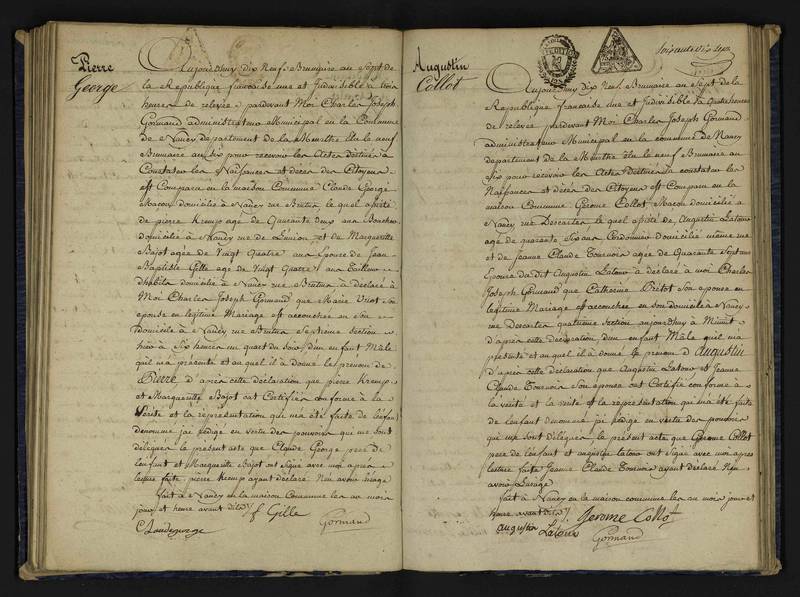 Pierre
George
Aujourd'huy Dix Neuf Brumaire an Sept de
la Republique francaise une et Indivisible à trois
heures de relevée, pardevant Moi Charles Joseph
Gormand administrateur Municipal en la Commune
de Nancy departement de la Meurthe élu le neuf
Brumaire an Six pour recevoir les Actes destinés à
Constater les Naissances et décès des Citoyens
est Comparu en la maison Commune Claude George
Macon domicilié à Nancy rue Brutus le quel assisté
de pierre Kremp agé de Quarante deux ans Boucher
domicilié à Nancy rue de L'union, et de Marguerite
Bajot agée de Vingt Quatre ans Epouse de Jean
Baptiste Gille age de Vingt Quatre ans Tailleur
dhabits domicilié à Nancy rue Brutus à déclaré à
Moi Charles Joseph Gormand que Marie Vriot Son
epouse en legitime Mariage est accouchée en Son
domicile à Nancy rue Brutus Septieme Section
hier à Six heures un quart du Soir, d'un enfant Mâle
quil m'a présenté et auquel il à donné le prénom de
Pierre, d'après cette déclaration que pierre Kremp
et Marguerite Bajot ont Certifiée conforme à la
Vérité et la représentation qui m'a été faite de l'enfant
denommé jai rédigé en vertu des pouvoirs qui me sont
délégués le présent acte que Claude George pere de
l'enfant et Marguerite Bajot ont signé avec moi apres
lecture faite, pierre Kremp ayant declaré n'en avoir l'usage
fait à Nancy en la maison Commune les an mois
jour et heure avant dits
f Gille
Claudegeorge
Gormand
Soixante dix sept
Augustin
Collot
Aujourd'huy dix Neuf Brumaire an Sept de la
Republique francaise une et Indivisible à Quatre heures
de relevée, pardevant Moi Charles Joseph Gormand
administrateur Municipal en la commune de Nancy
departement de la Meurthe élu le neuf Brumaire an
Six pour recevoir les Actes destinés à constater les
Naissances et décès des Citoyens est Comparu en la
maison Commune Gerome Collot Macon domicilié à
Nancy rue Descartes le quel assisté de Augustin Latour
agé de quarante Six ans Cordonnier domicilié même rue
et de Jeanne Claude Tournoir agée de Quarante Sept ans
Epouse du dit Augustin Latour à déclaré à moi Charles
Joseph Gormand que Catherine Son epouse en
légitime Mariage est accouchée en son domicile à Nancy
rue Descartes quatrieme section aujourd'huy à Minuit
d'un enfant Mâle quil m'a
présenté et auquel il à donné le prénom d'Augustin
d'après cette déclaration que Augustin Latour et Jeanne
Claude Tournoir Son epouse ont Certifié conforme à
la vérité et la représentation qui m'a été faite
de l'enfant denommé jai rédigé en vertu des pouvoirs
qui me sont délégués le présent acte que Gerome Collot
pere de l'enfant et augustin latour ont Signé avec moi apres
lecture faite Jeanne Claude Tournoir ayant déclaré N'en
avoir L'usage
fait à Nancy en la maison commune les an mois jour et
heure avant dits
Jerome Collot
augustin Latour
Gormand